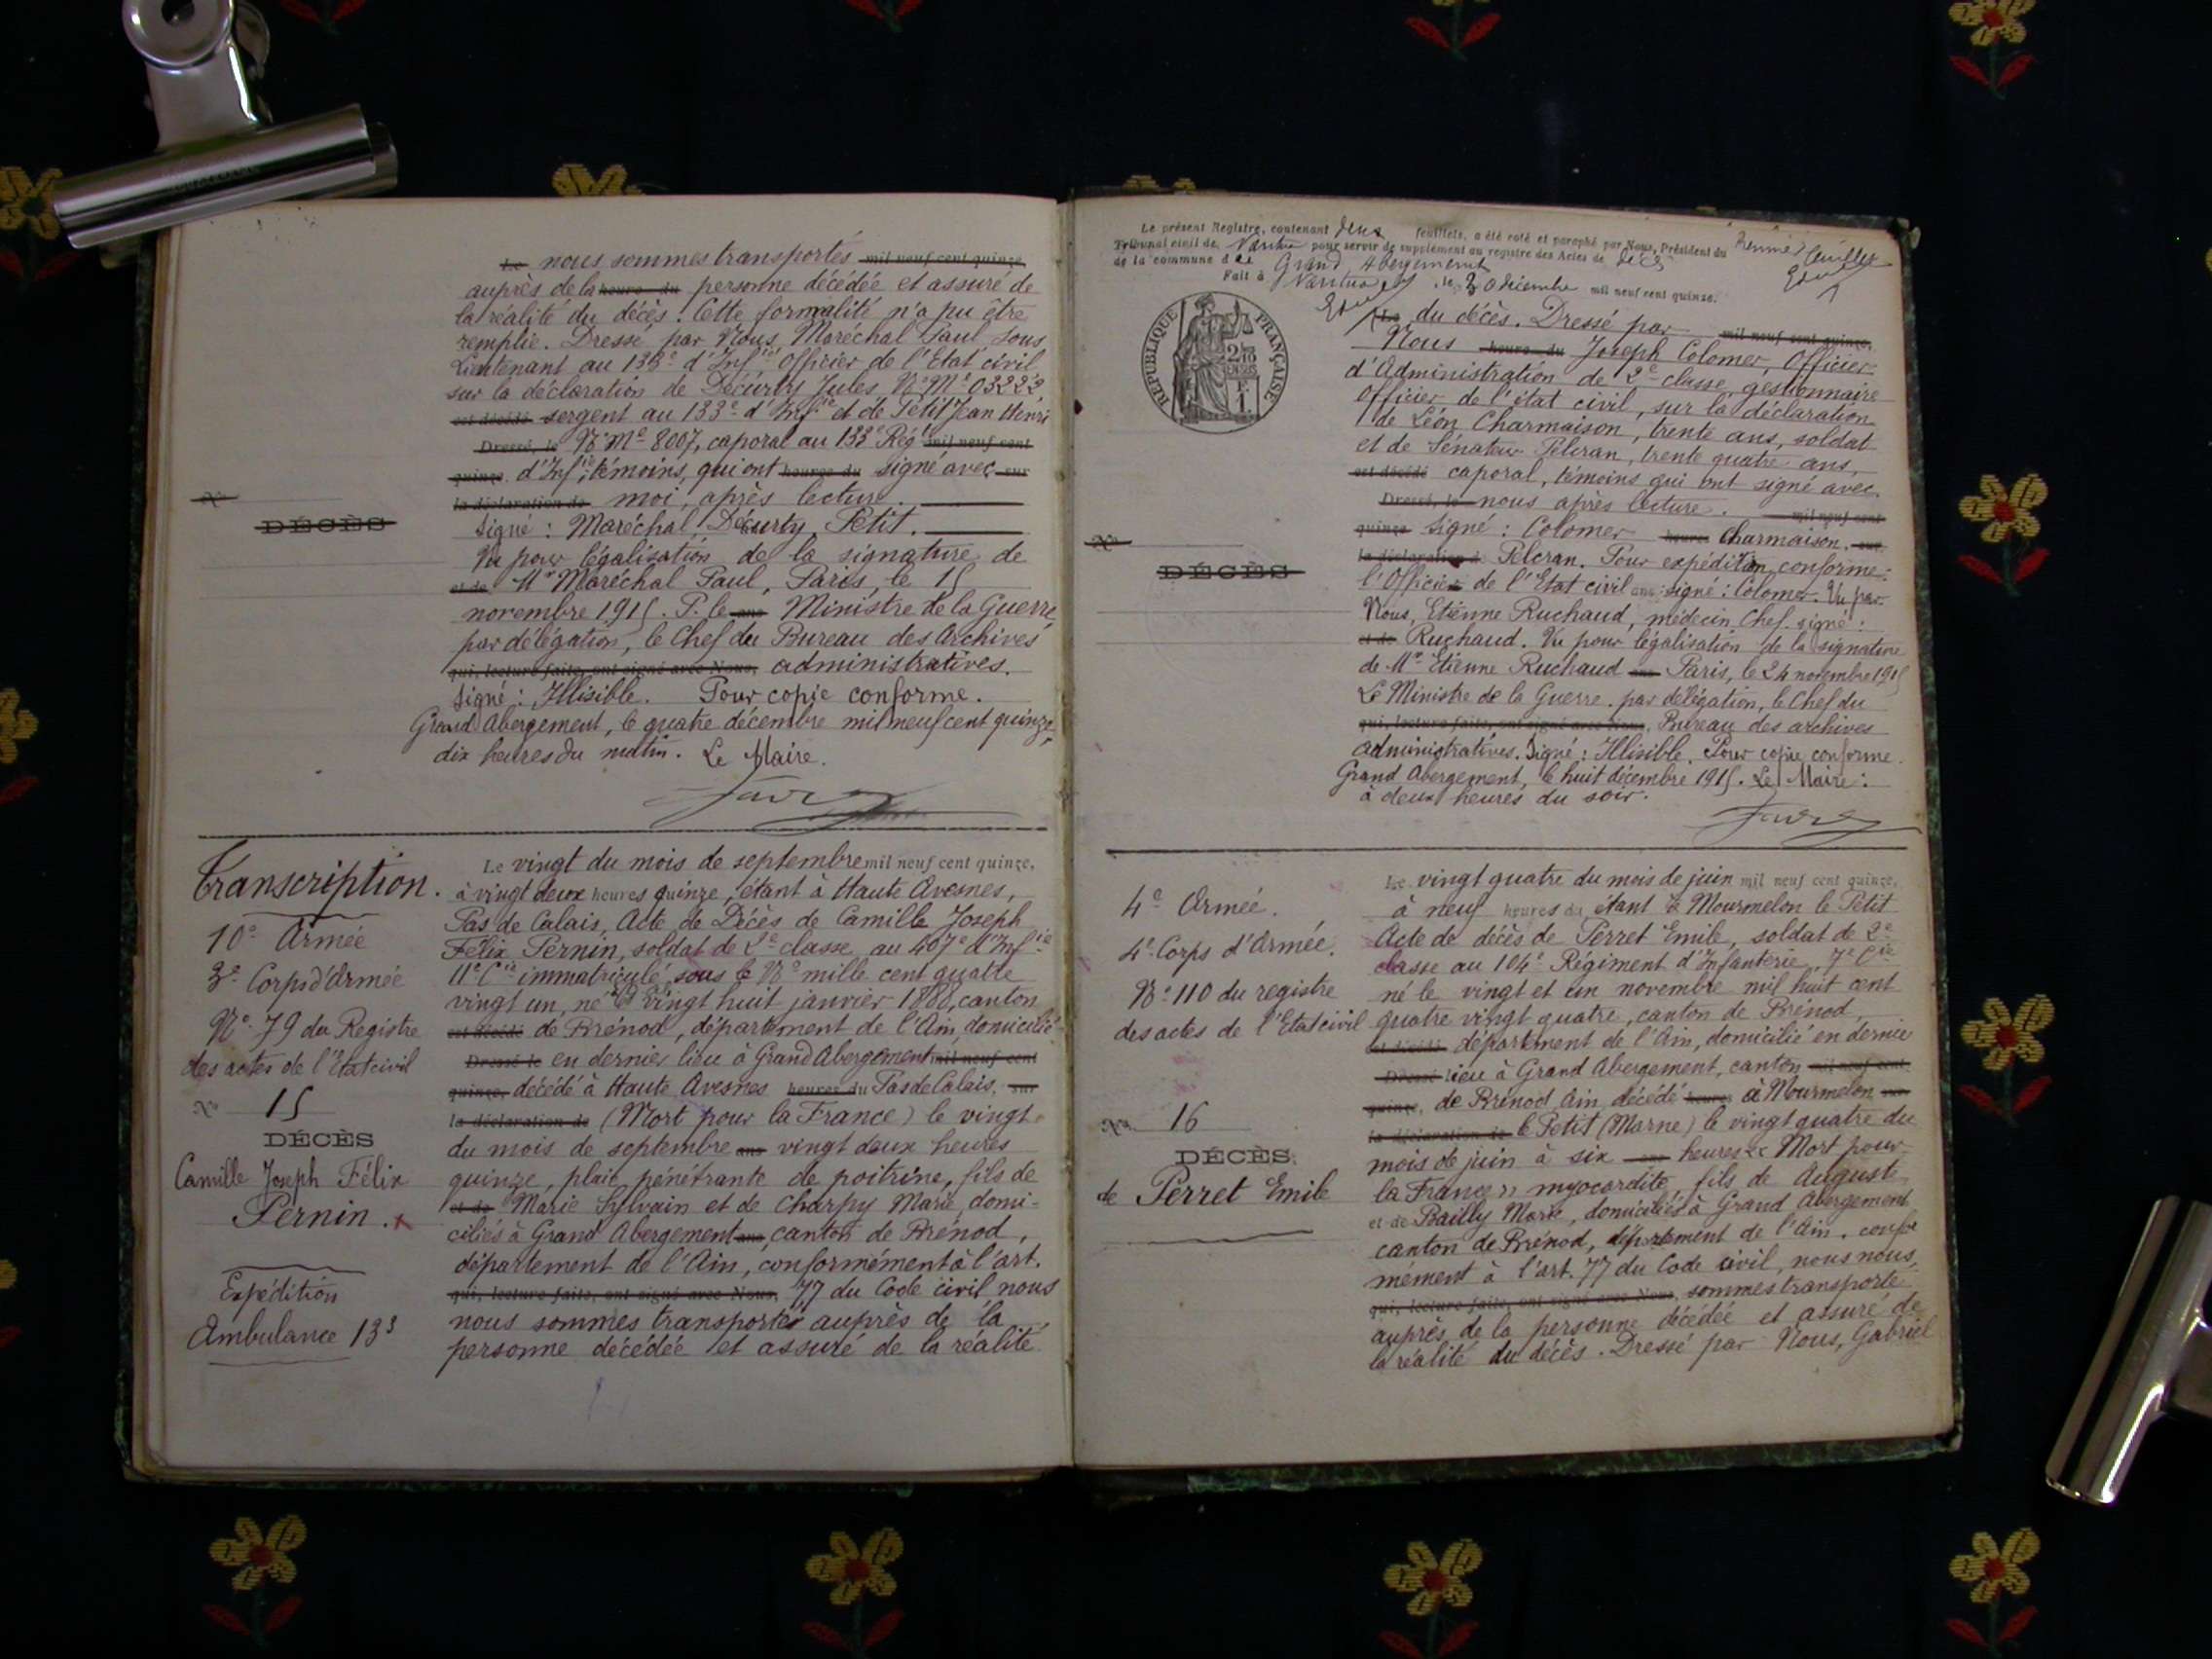 Le nous sommes transportés mil neuf cent quinze,
auprès de la heure du personne décédée et assuré de
la réalité du décès. Cette formalité n'a pu être
remplie. Dressé par Nous, Maréchal Paul sous
Lieutenant au 133e d'Infie Officier de l'Etat civil
sur la déclaration de Décurty Jules No Me 03222
est décédé sergent au 133e d'Infie et de Petit Jean Henri
Dressé, le No Me 8007, caporal au 133e Régt mil neuf cent
quinze, d'Infie, témoins, qui ont heures du signé avec sur
la déclaration de moi, après lecture.
No
DÉCÈS
Signé : Maréchal, Décurty, Petit.
Vu pour légalisation de la signature de
et de Mr Maréchal Paul, Paris, le 15
novembre 1915. P. le ans Ministre de la Guerre
par délégation, le Chef du Bureau des Archives
qui, lecture faite, ont signé avec Nous, administratives.
Signé : Illisible. Pour copie conforme.
Grand Abergement, le quatre décembre mil neuf cent quinze,
dix heures du matin. Le Maire.
Favre
Transcription.
10e Armée
3e Corps d'Armée
No 79 du Registre
des actes de l'Etat civil
No 15
DÉCÈS
Camille Joseph Félix
Pernin.
Expédition
Ambulance 133
Le vingt du mois de septembre mil neuf cent quinze,
à vingt deux heures quinze, étant à Haute Avesnes,
Pas de Calais, Acte de Décès de Camille Joseph
Félix Pernin, soldat de 2e classe au 407e d'Infie
11e Cie immatriculé sous le No mille cent quatre
vingt un, né le vingt huit janvier 1880, canton
est décédé de Brénod, département de l'Ain, domicilié
Dressé le en dernier lieu à Grand Abergement mil neuf cent
quinze, décédé à Haute Avesnes heures du Pas de Calais, sur
la déclaration de (Mort pour la France) le vingt
du mois de septembre ans vingt deux heures
quinze, plaie pénétrante de poitrine, fils de
et de Marie Sylvain et de Charpy Marie, domi-
ciliés à Grand Abergement ans, canton de Brénod,
département de l'Ain, conformément à l'art.
qui, lecture faite, ont signé avec Nous, 77 du Code civil nous
nous sommes transportés auprès de la
personne décédée et assuré de la réalité
Le présent Registre, contenant deux feuillets, a été coté et paraphé par Nous, Président du
Tribunal civil de Nantua pour servir de supplément au registre des Actes de décès
de la commune de Grand Abergement
Fait à Nantua, le 3 décembre mil neuf cent quinze.
RÉPUBLIQUE FRANÇAISE
Le du décès. Dressé par mil neuf cent quinze,
Nous heure du Joseph Colomer, Officier
d'Administration de 2e classe, gestionnaire
officier de l'état civil, sur la déclaration
de Léon Charmaison, trente ans, soldat
et de Sénateur Pelcran, trente quatre ans,
est décédé caporal, témoins qui ont signé avec
Dressé, le nous après lecture. mil neuf cent
No
DÉCÈS
quinze Signé : Colomer heures Charmaison. sur
la déclaration de Pelcran. Pour expédition conforme :
l'Officier de l'Etat civil ans signé : Colomer. Vu par
Nous, Etienne Ruchaud, médecin Chef. signé :
et de Ruchaud. Vu pour légalisation de la signature
de Mr Etienne Ruchaud ans Paris, le 24 novembre 1915
Le Ministre de la Guerre, par délégation, le Chef du
qui, lecture faite, ont signé avec Nous, Bureau des archives
administratives. Signé : Illisible. Pour copie conforme.
Grand Abergement, le huit décembre 1915. Le Maire :
à deux heures du soir.
Favre
4e Armée.
4e Corps d'Armée.
No 110 du registre
des actes de l'Etat civil
No 16
DÉCÈS
de Perret Emile
Le vingt quatre du mois de juin mil neuf cent quinze,
à neuf heures du, étant à Mourmelon le Petit
Acte de décès de Perret Emile, soldat de 2e
classe au 104e Régiment d'Infanterie, 7e Cie
né le vingt et un novembre mil huit cent
quatre vingt quatre, canton de Brénod,
est décédé département de l'Ain, domicilié en dernier
Dressé lieu à Grand Abergement, canton mil neuf cent
quinze, de Brénod Ain, décédé heures à Mourmelon sur
la déclaration de le Petit (Marne) le vingt quatre du
mois de juin à six ans heures « Mort pour
la France » myocardite, fils de Auguste
et de Bailly Marie, domiciliés à Grand Abergement
canton de Brénod, département de l'Ain, confor
mément à l'art. 77 du Code civil, nous nous,
qui, lecture faite, ont signé avec Nous, sommes transporté
auprès de la personne décédée et assuré de
la réalité du décès. Dressé par Nous, Gabriel